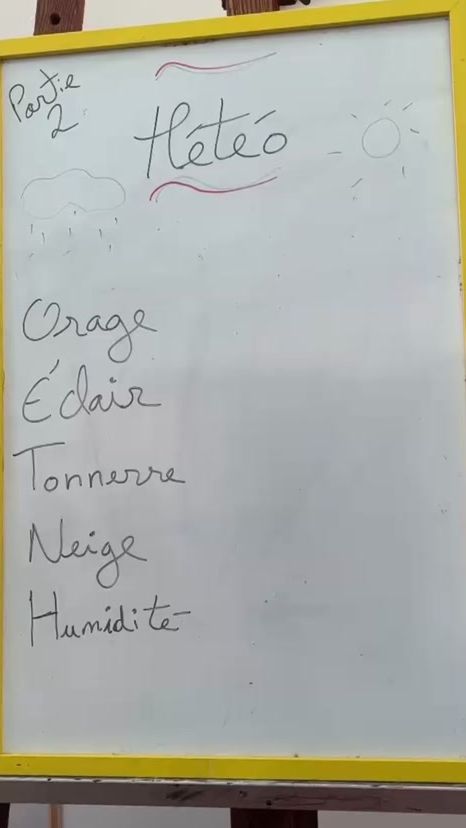 Partie
2
Météo
Orage
Éclair
Tonnerre
Neige
Humidité